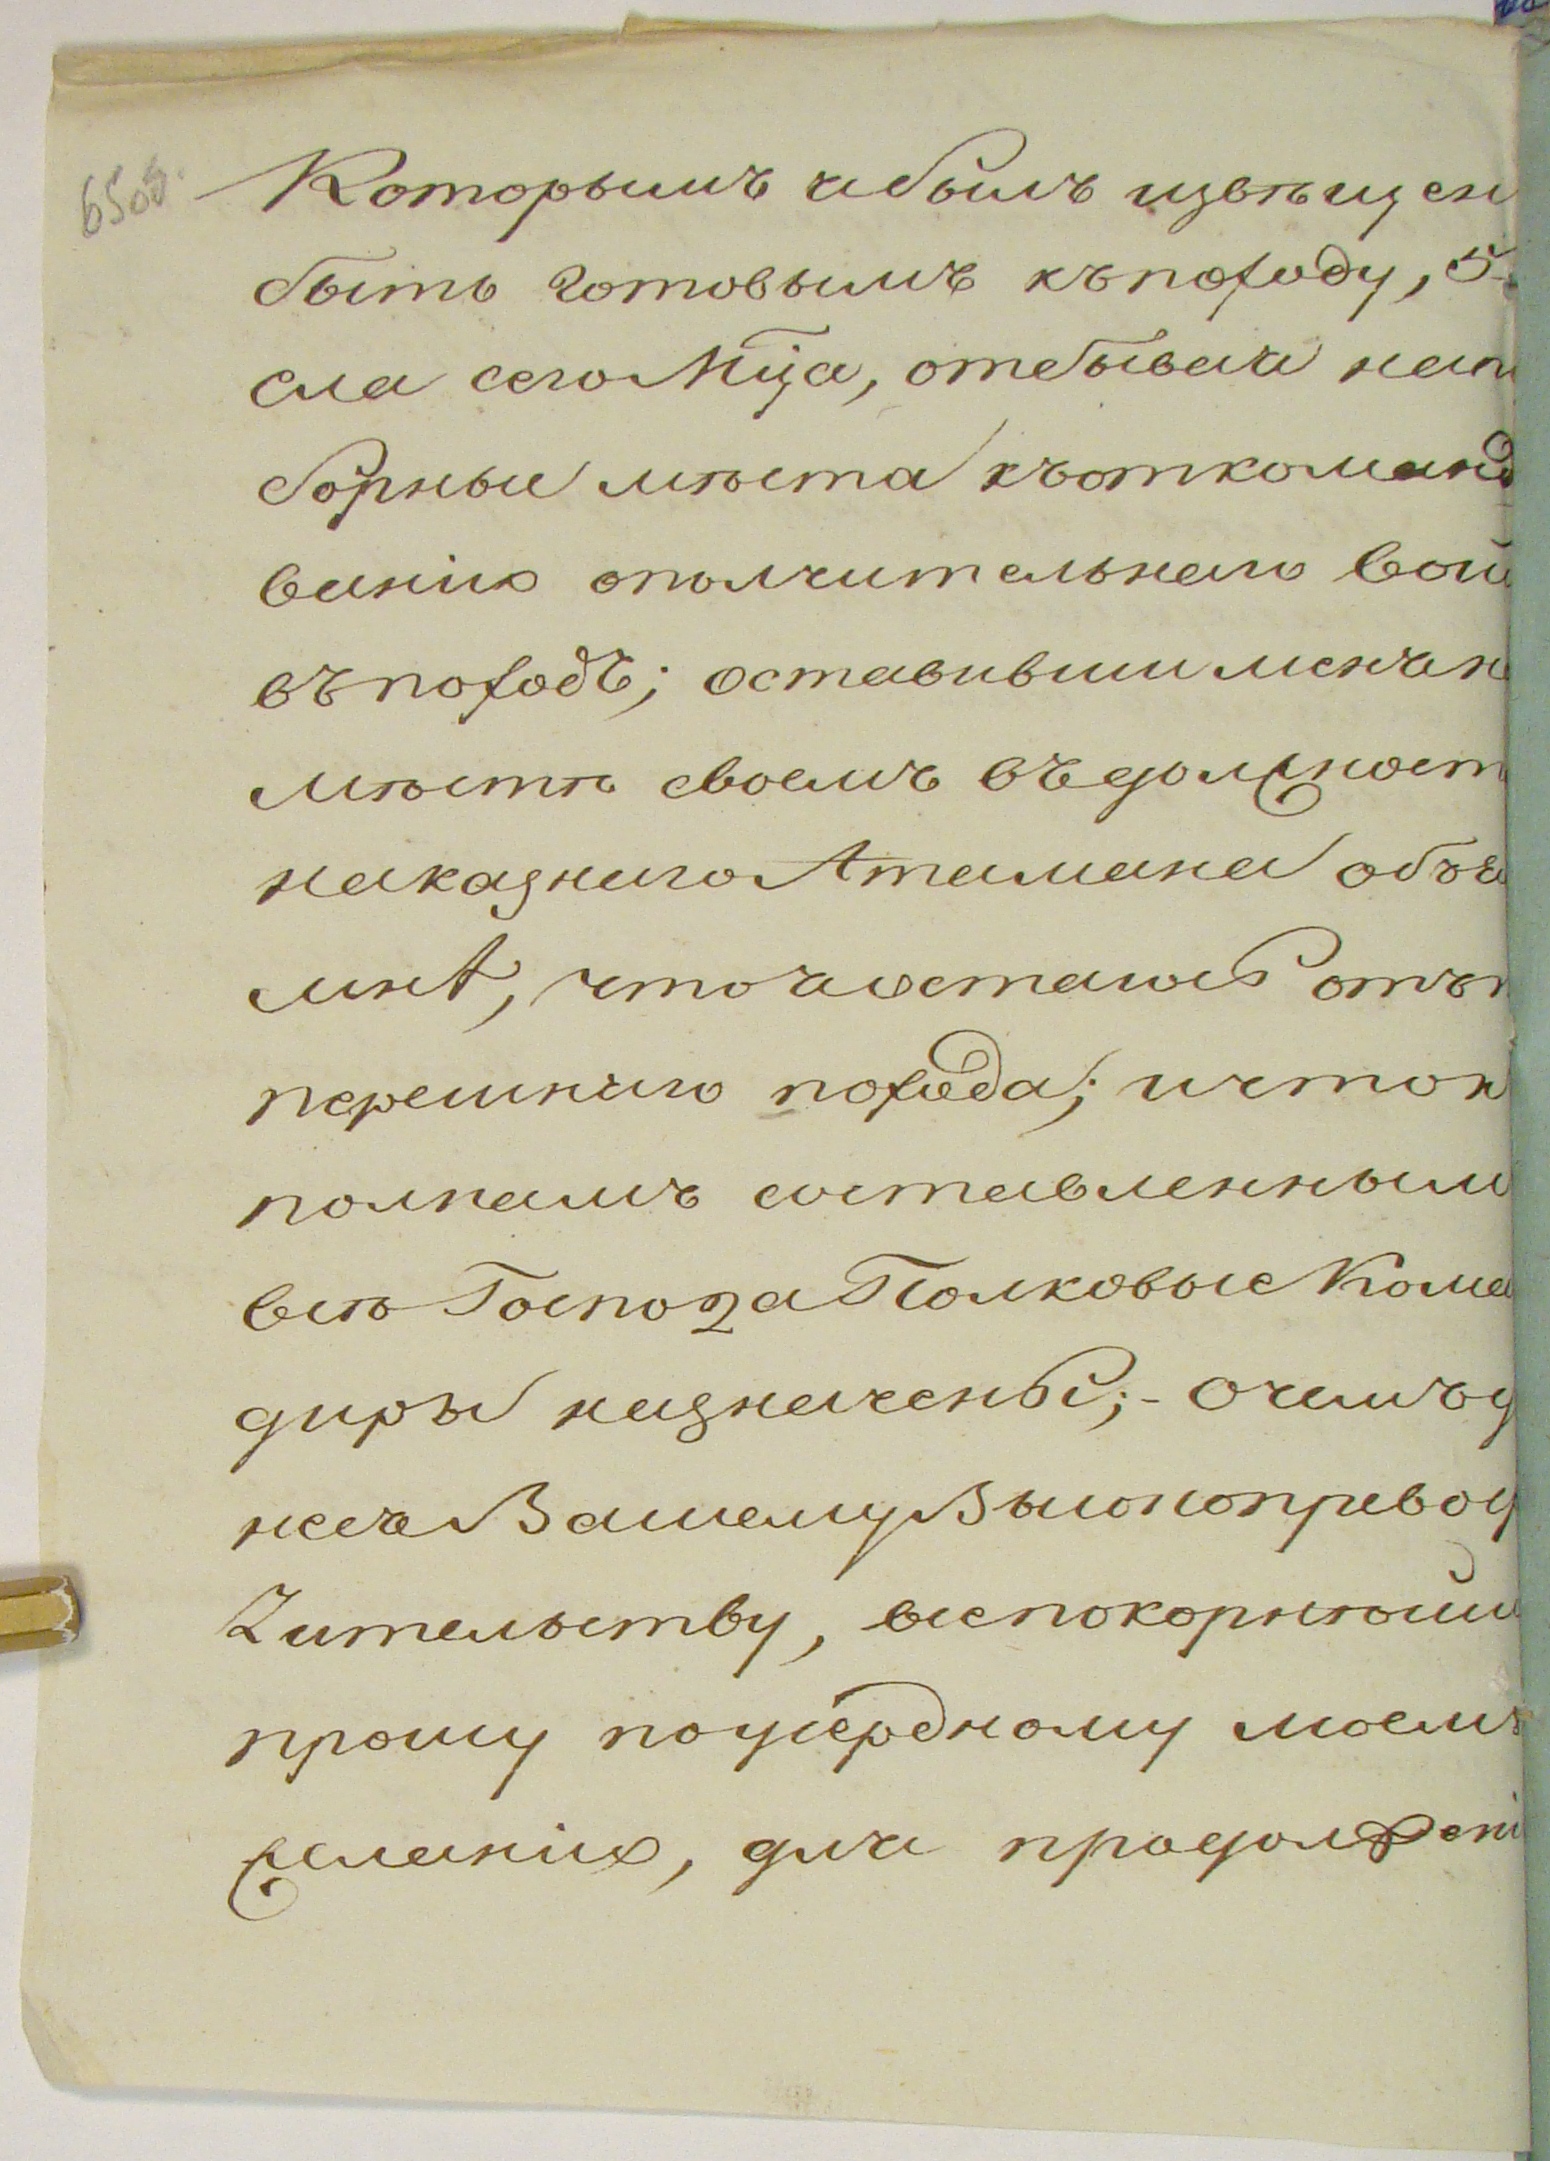 65об.
Которымъ я былъ извѣщен
быть готовымъ къ походу, 5
сла сего Мц̃а, отбывая на
борные мѣста къ откоманд
ванію ополчительнаго вой
въ походъ; оставивши меня н
мѣстѣ своемъ въ должност
наказнаго Атамана объя
мнѣ, что я остаюсь отъ
перешняго похода; и что к
полкамъ составленным
всѣ Господа Полковые Коман
диры назначены;- о чемъ д
нося Вашему Высокопревос
ходительству, всепокорнѣйш
прошу по усердному моем
желанію, для продолжені